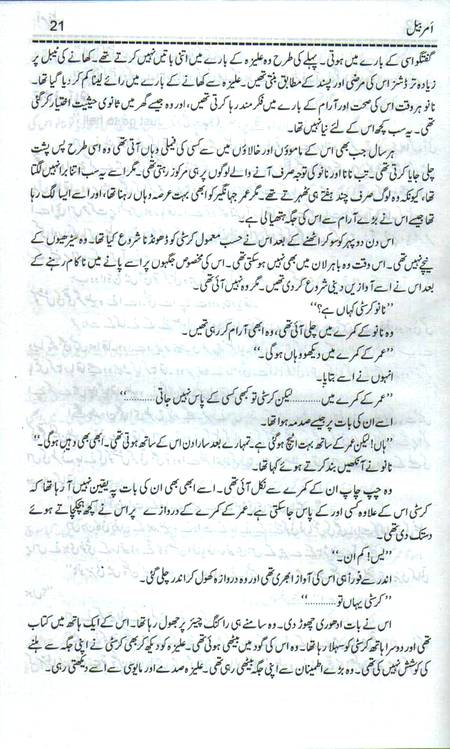 امر بیل 21
گفتگو اسی کے بارے میں ہوتی۔ پہلے کی طرح وہ علیزہ کے بارے میں اتنی باتیں نہیں کرتے تھے۔ کھانے کی ٹیبل پر
زیادہ تر ڈشز اس کی مرضی اور پسند کے مطابق بنتی تھیں۔ علیزہ سے کھانے کے بارے میں رائے لینا کم کر دیا گیا تھا۔
نانو ہر وقت اس کی صحت اور آرام کے بارے میں فکر مند رہا کرتی تھیں، اور وہ جیسے گھر میں ثانوی حیثیت اختیار کر گئی
تھی۔ یہ سب کچھ اس کے لئے نیا نہیں تھا۔
ہر سال جب بھی اس کے ماموؤں اور خالاؤں میں سے کسی کی فیملی وہاں آتی تھی وہ اسی طرح پس پشت
چلی جایا کرتی تھی۔ تب نانا اور نانو کی توجہ صرف آنے والے لوگوں پر ہی مرکوز رہتی تھی۔ مگر اسے یہ سب اتنا برا نہیں لگتا
تھا، کیونکہ وہ لوگ صرف چند ہفتے ہی ٹھہرتے تھے۔ مگر عمر جہانگیر کو ابھی بہت عرصہ وہاں رہنا تھا، اور اسے ایسا لگ رہا
تھا جیسے اس نے بڑے آرام سے اس کی جگہ ہتھیا لی ہے۔
اس دن دوپہر کو سو کر اٹھنے کے بعد اس نے حسب معمول کرسٹی کو ڈھونڈنا شروع کیا تھا۔ وہ سیڑھیوں کے
نیچے نہیں تھی۔ اس وقت وہ باہر لان میں بھی نہیں ہو سکتی تھی۔ اس کی مخصوص جگہوں پر اسے پانے میں ناکام رہنے کے
بعد اس نے اسے آوازیں دینی شروع کر دی تھیں۔ مگر وہ نہیں آئی تھی۔
’’نانو کرسٹی کہاں ہے؟‘‘
وہ نانو کے کمرے میں چلی آئی تھی، وہ ابھی آرام کر رہی تھیں۔
’’عمر کے کمرے میں دیکھو وہاں ہو گی۔‘‘
انہوں نے اسے بتایا۔
’’عمر کے کمرے میں .......... لیکن کرسٹی تو کبھی کسی کے پاس نہیں جاتی ..........‘‘
اسے ان کی بات پر جیسے صدمہ ہوا تھا۔
’’ہاں! لیکن عمر کے ساتھ بہت اٹیچ ہو گئی ہے۔ تمہارے بعد سارا دن اس کے ساتھ ہوتی تھی۔ ابھی بھی وہیں ہو گی۔‘‘
نانو نے آنکھیں بند کرتے ہوئے کہا تھا۔
وہ چپ چاپ ان کے کمرے سے نکل آئی تھی۔ اسے ابھی بھی ان کی بات پہ یقین نہیں آ رہا تھا کہ
کرسٹی اس کے علاوہ کسی اور کے پاس جا سکتی ہے۔ عمر کے کمرے کے دروازے پر اس نے کچھ ہچکچاتے ہوئے
دستک دی تھی۔
’’یس! کم ان۔‘‘
اندر سے فوراً ہی اس کی آواز ابھری تھی اور وہ دروازہ کھول کر اندر چلی گئی۔
’’کرسٹی یہاں تو ..........‘‘
اس نے بات ادھوری چھوڑ دی۔ وہ سامنے ہی راکنگ چیئر پر جھول رہا تھا۔ اس کے ایک ہاتھ میں کتاب
تھی اور دوسرا ہاتھ کرسٹی کو سہلا رہا تھا۔ وہ اس کی گود میں بیٹھی ہوئی تھی۔ علیزہ کو دیکھ کر بھی کرسٹی نے اپنی جگہ سے ہلنے
کی کوشش نہیں کی تھی۔ وہ بڑے اطمینان سے اپنی جگہ بیٹھی رہی تھی۔ علیزہ صدمے اور مایوسی سے اسے دیکھتی رہی۔